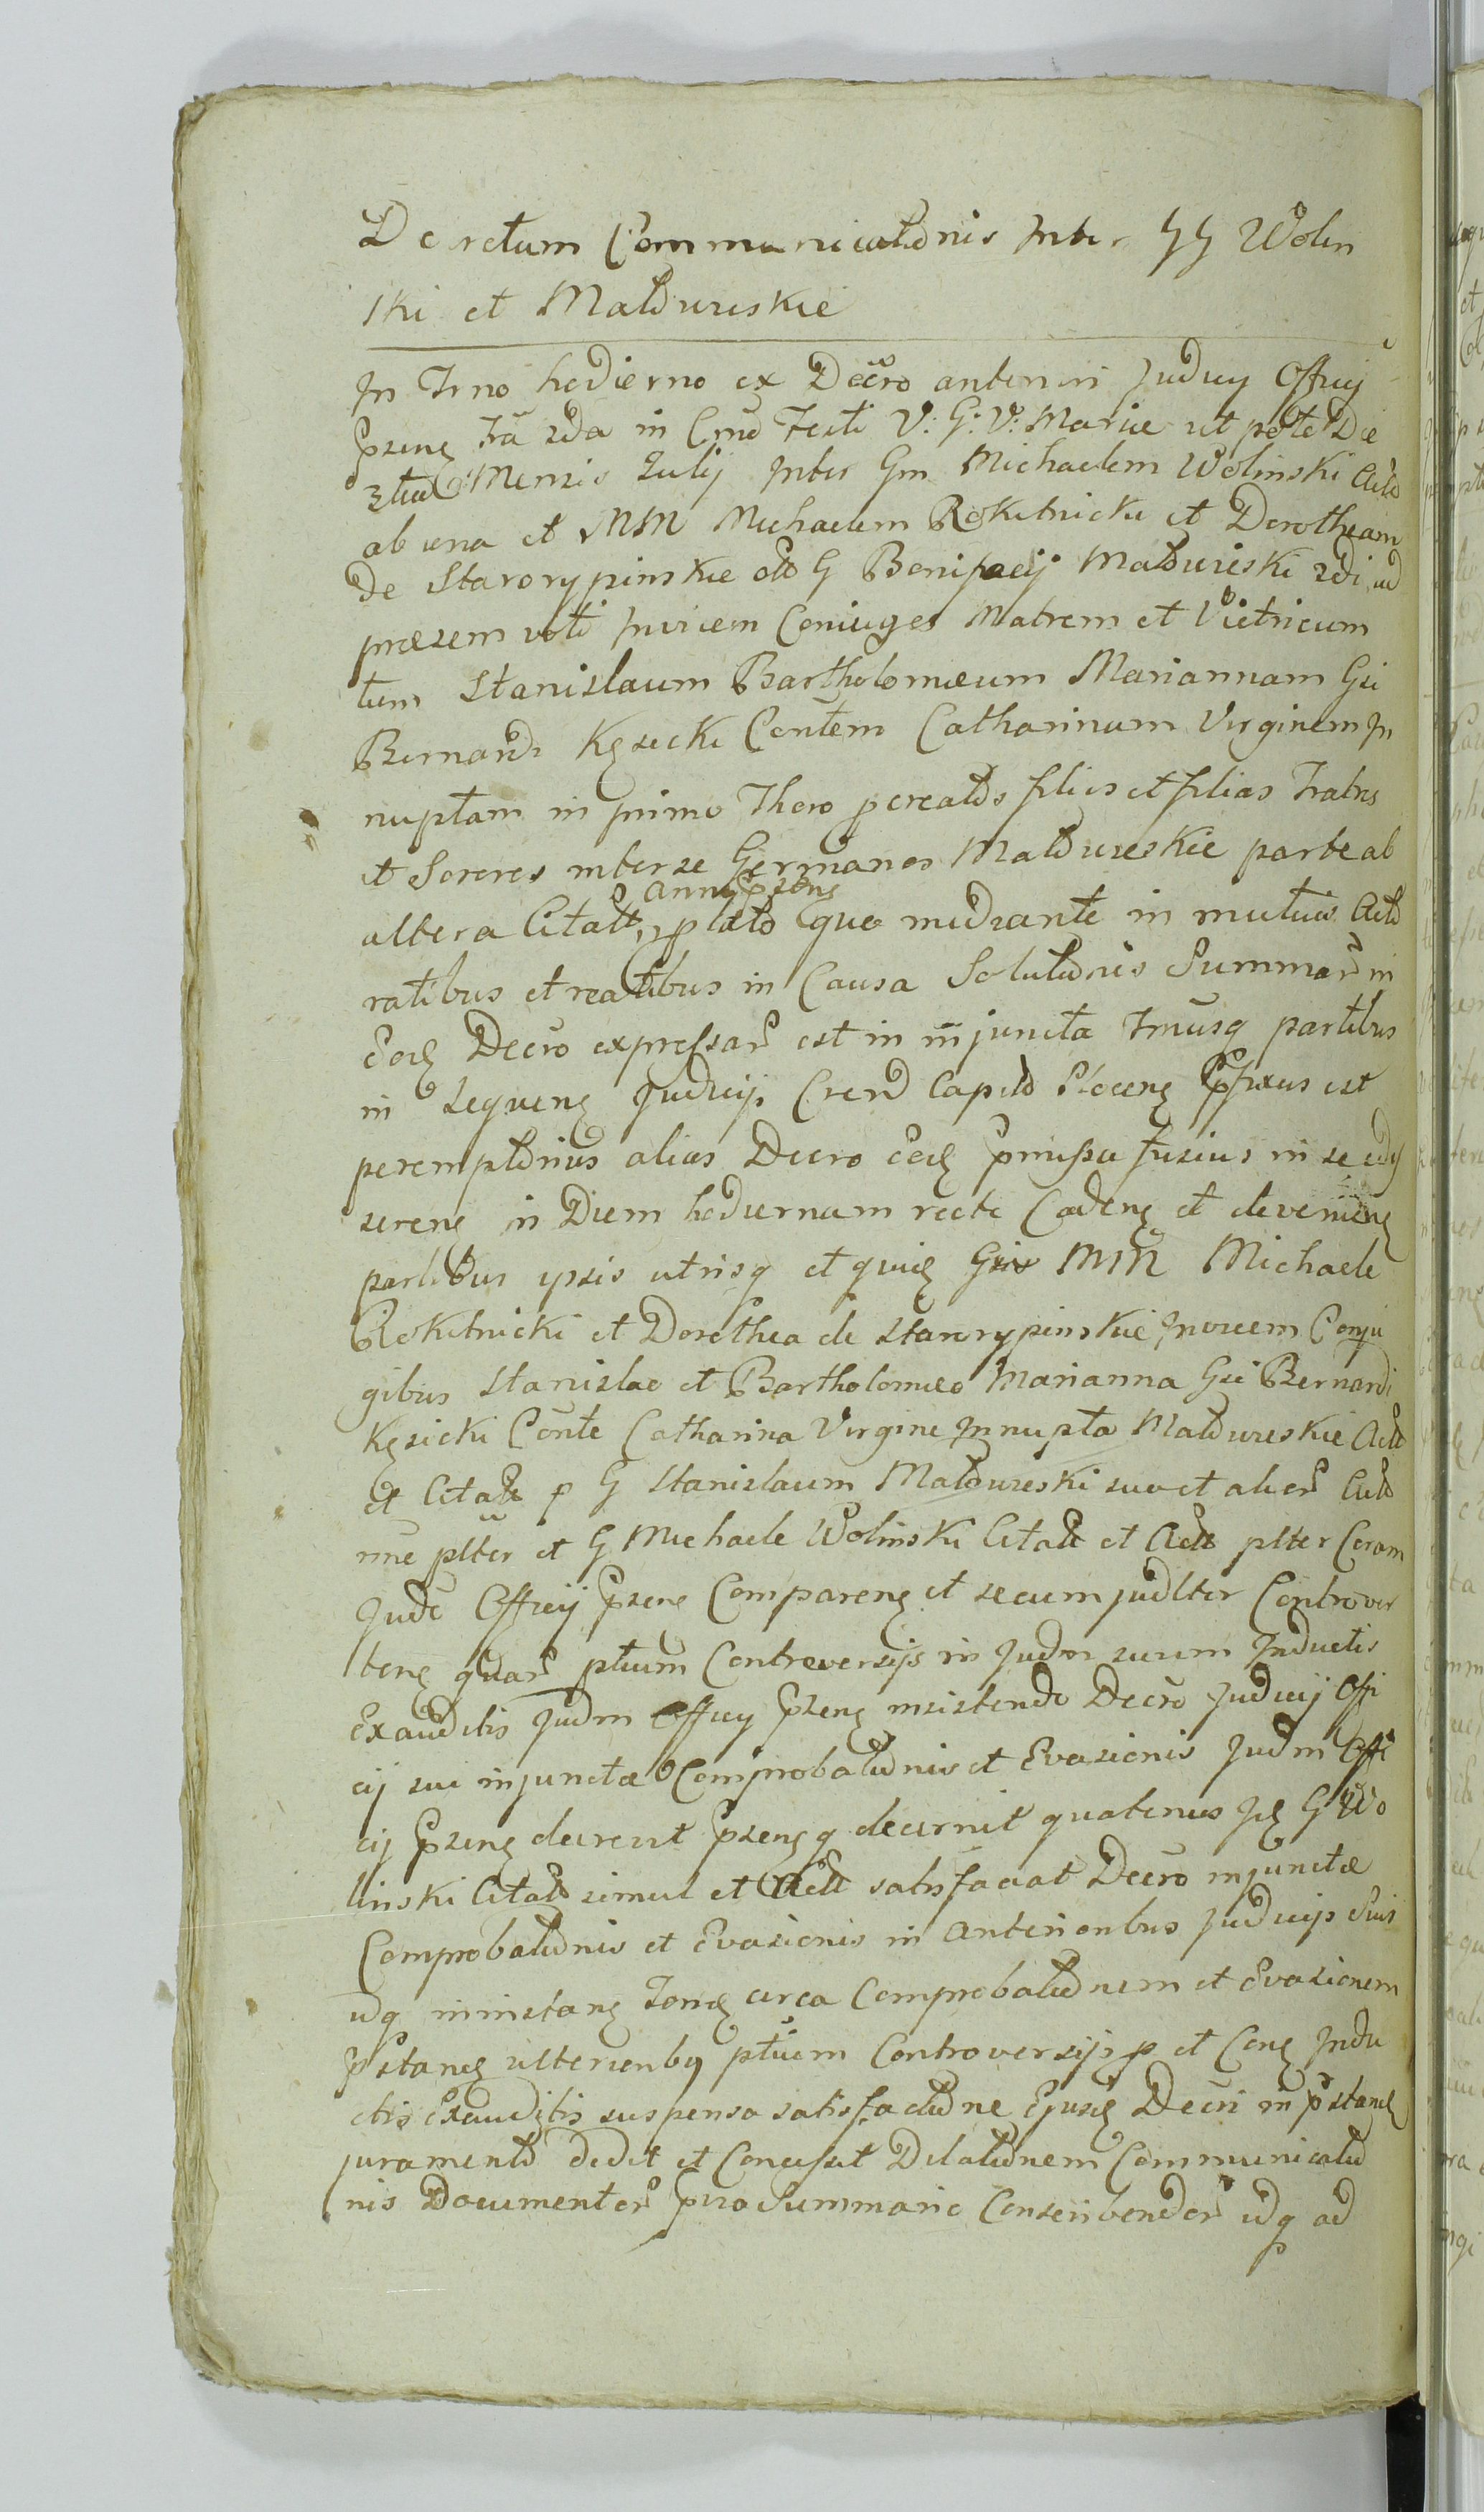 Decretum Communicationis Inter GG Wolin
ski et Maldureskie
In Trno hodierno ex Decro anteriori Judicij Officij
Pręsenę fra 2da in Crno Festi V: G: V: Mariæ ut pote Die
Mensis Julij Inter Gm Michaelem Wolinski Actt
ab una et MM Michaelem Rokitnicki et Dorotheam
de Starorypinskie G Bonifacij Maldureski 2di ad
præsem voti Invicem Coniuges Matrem et Vietricum
tum Stanislaum Bartholomæum Mariannam Gsi
Bernardi Kęsicki Contem Catharinam Virginem In
nuptam in primo Thoro pcreatos filios et filias Fratres
et Sorores inter se Germanos Maldureskie parte ab
anni psens
altera Citatt, plato quo mediante in mutuis Actt
ratibus et reatibus in Causa Solutionis Summar in
eoq Decro expressar est in injuncta Tmusq partibus
in sequenę Judicijs Crend Capit Plocenę pfixus est
peremptorius alias Decro eoq pmissa fusius in se edis
serenę in Diem hodiernam recte Cadenę et devenienę
partibus ipsis utrisq et quiq Gsis MM Michaele
Rokitnicki et Dorothea de Starorypinskie Invicem Conju
gibus Stanislao et Bartholomæo Marianna Gsi Bernardi
Kęsicki Conte Catharina Virgine Innupta Maldureskie Actt
et Citatt p G Stanislaum Maldureski suo et alior Citt
nne plter et G Michaele Wolinski Citatt et Actt plter Coram
Judo Officij Psenę Comparenę et secum judlter Controver
tenę quar ptium Controversijs in Judm suum Inductis
Exauditis Judm Officij Psenę insistendo Decro Judicij Offi
cij sui injunctæ Comprobationis et Evasionis Judm Offi
cij Psenę decrevit Psenęq decernit quatenus Jq G Wo
linski Citatt simul et Actt satisfaciat Decro injunctæ
Comprobationis et Evasionis in anterioribus Judicijs Suis
idq ininstanę Tonę circa Comprobationem et Evasionem
pstanę ulterioribq ptium Controversijs p et Conę Indu
ctis Exauditis suspensa satisfactione Ejusq Decri in pstanę
juramento dedit et Concessit Dilationem Communicatio
nis Documentor pro Summario Conseribendor idq ad